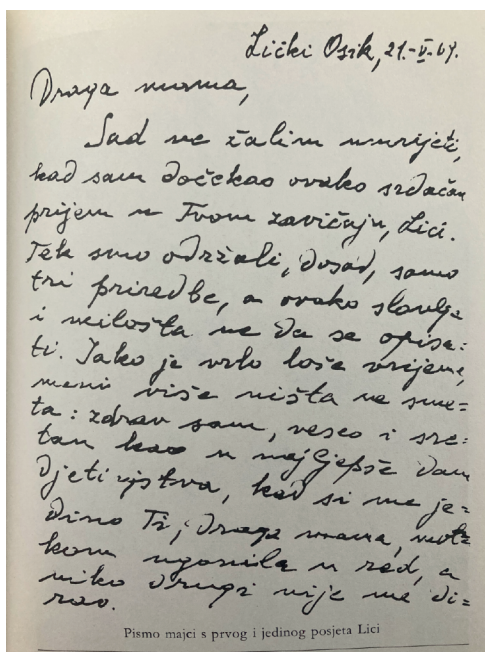 Lički Osik, 21.-V-69.
Draga mama,
Sad ne žalim umrijeti,
kad sam dočekao ovako srdačan
prijem u Tvom zavičaju, Lici.
Tek smo održali, dosad, samo
tri priredbe, a ovako slavlje
i milošta ne da se opisa=
ti. Iako je vrlo loše vrijeme,
meni više ništa ne sme=
ta: zdrav sam, veseo i sre=
tan kao u najljepše dane
djetinjstva, kad si me je=
dino Ti, draga mama,
kom ugonila u red, a
niko drugi nije me di=
rao.
Pismo majci s prvog i jedinog posjeta Lici